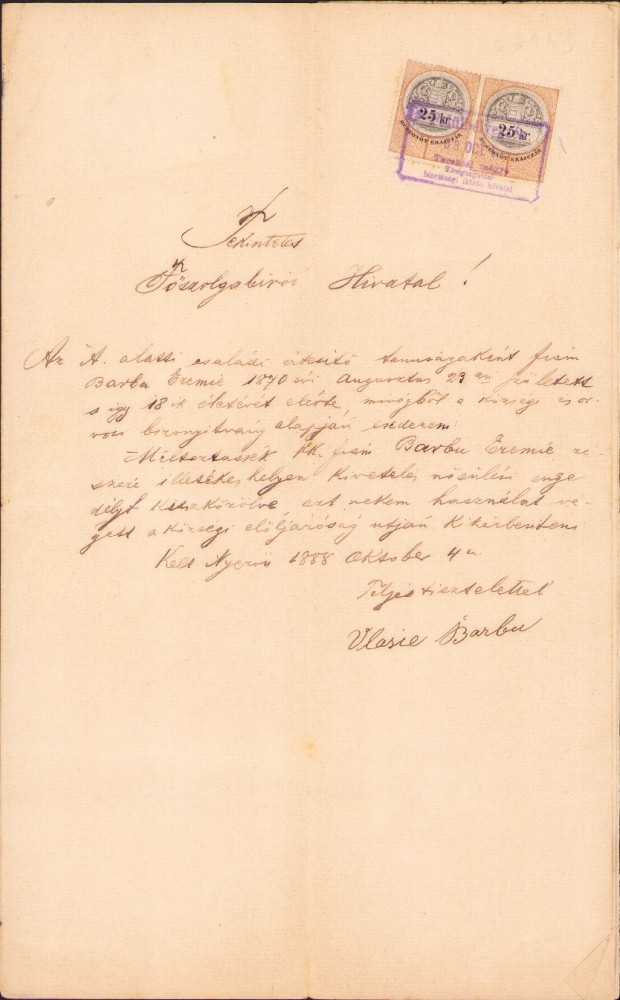 25 kr.
HUSZONÖT KRAJCZÁR
25 kr.
HUSZONÖT KRAJCZÁR
OCT
Torontál megye
közigazgatási
bizottsági iktató hivatal
Tekintetes
Főszolgabirói Hivatal!
Az A. alatti családi értesitő tanuságaként fiam
Barbu Eremie 1870 évi Augusztus 29 én született
s igy 18 ik életévét elérte, minőgből a községi és or-
vosi bizonyitvány alapján esedezem:
Méltóztassék kk. fiam Barbu Eremie ré-
szére illetékes helyen kivételes nősülési enge
délyt kieszközölve ezt nekem használat vé-
gett a községi elöljáróság utján kikézbeniteni
Kelt 1888 Oktober 4 én
Teljes tisztelettel
Vlasie Barbu